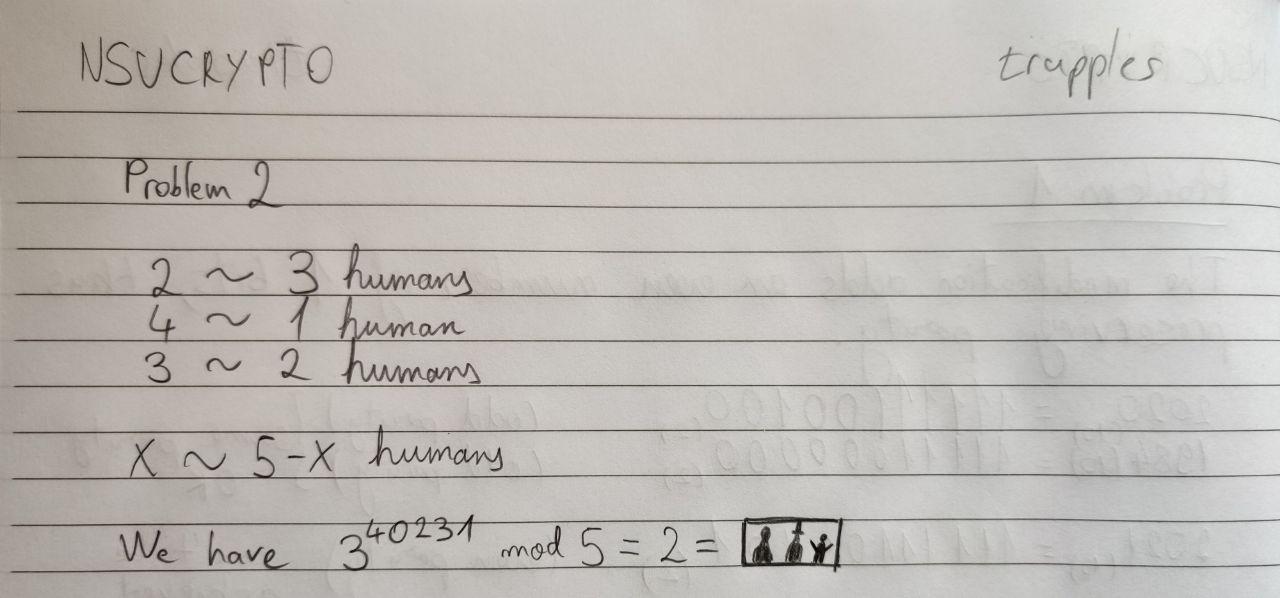 NSUCRYPTO
trapples
Problem 2
2 ~ 3 humans
4 ~ 1 human
3 ~ 2 humans
x ~ 5-x humans
We have 3^40231 mod 5 = 2 =